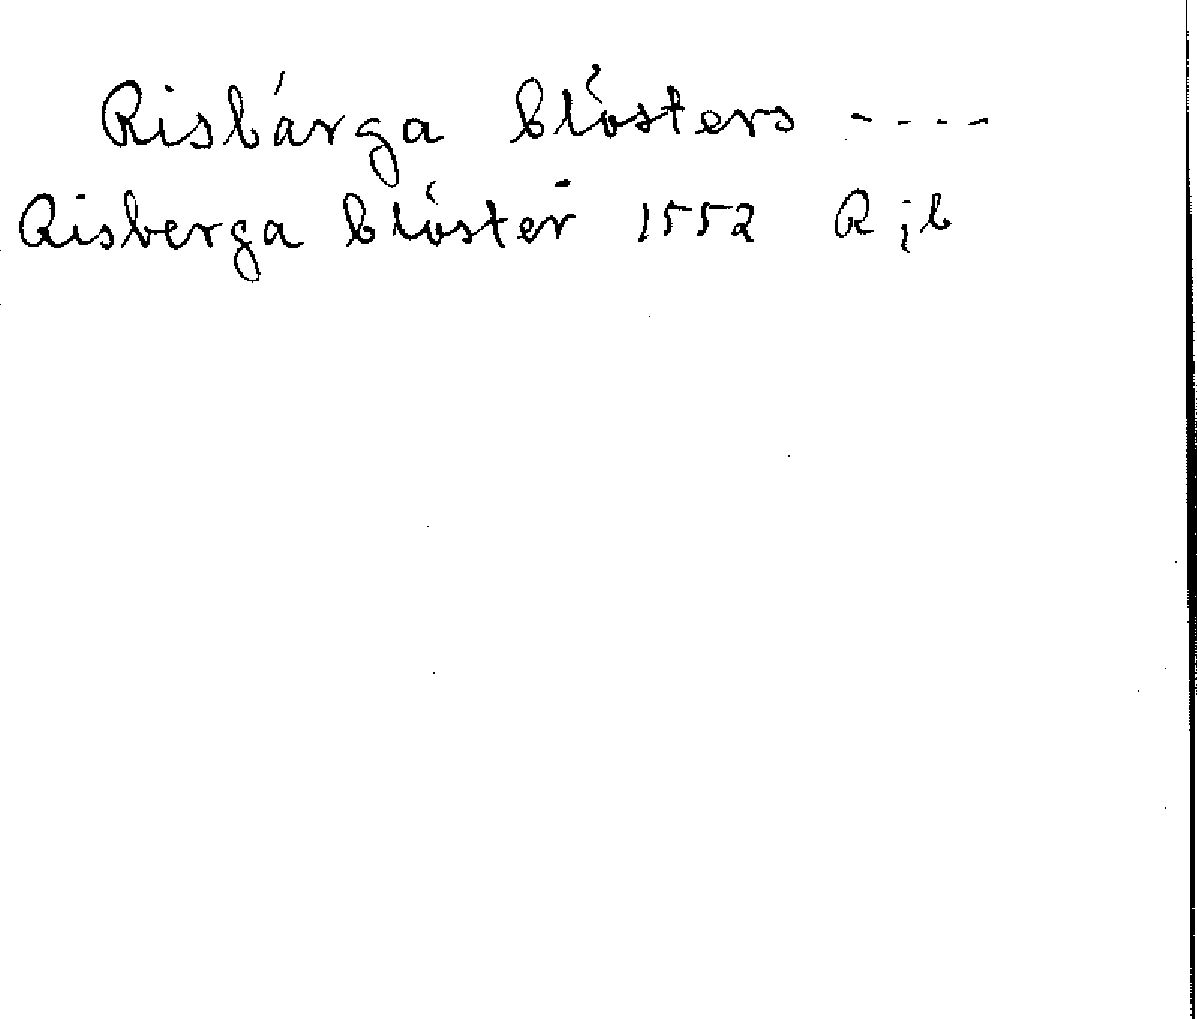 Risbárga Clósters ----
Risberga Clóster 1552 Rjb